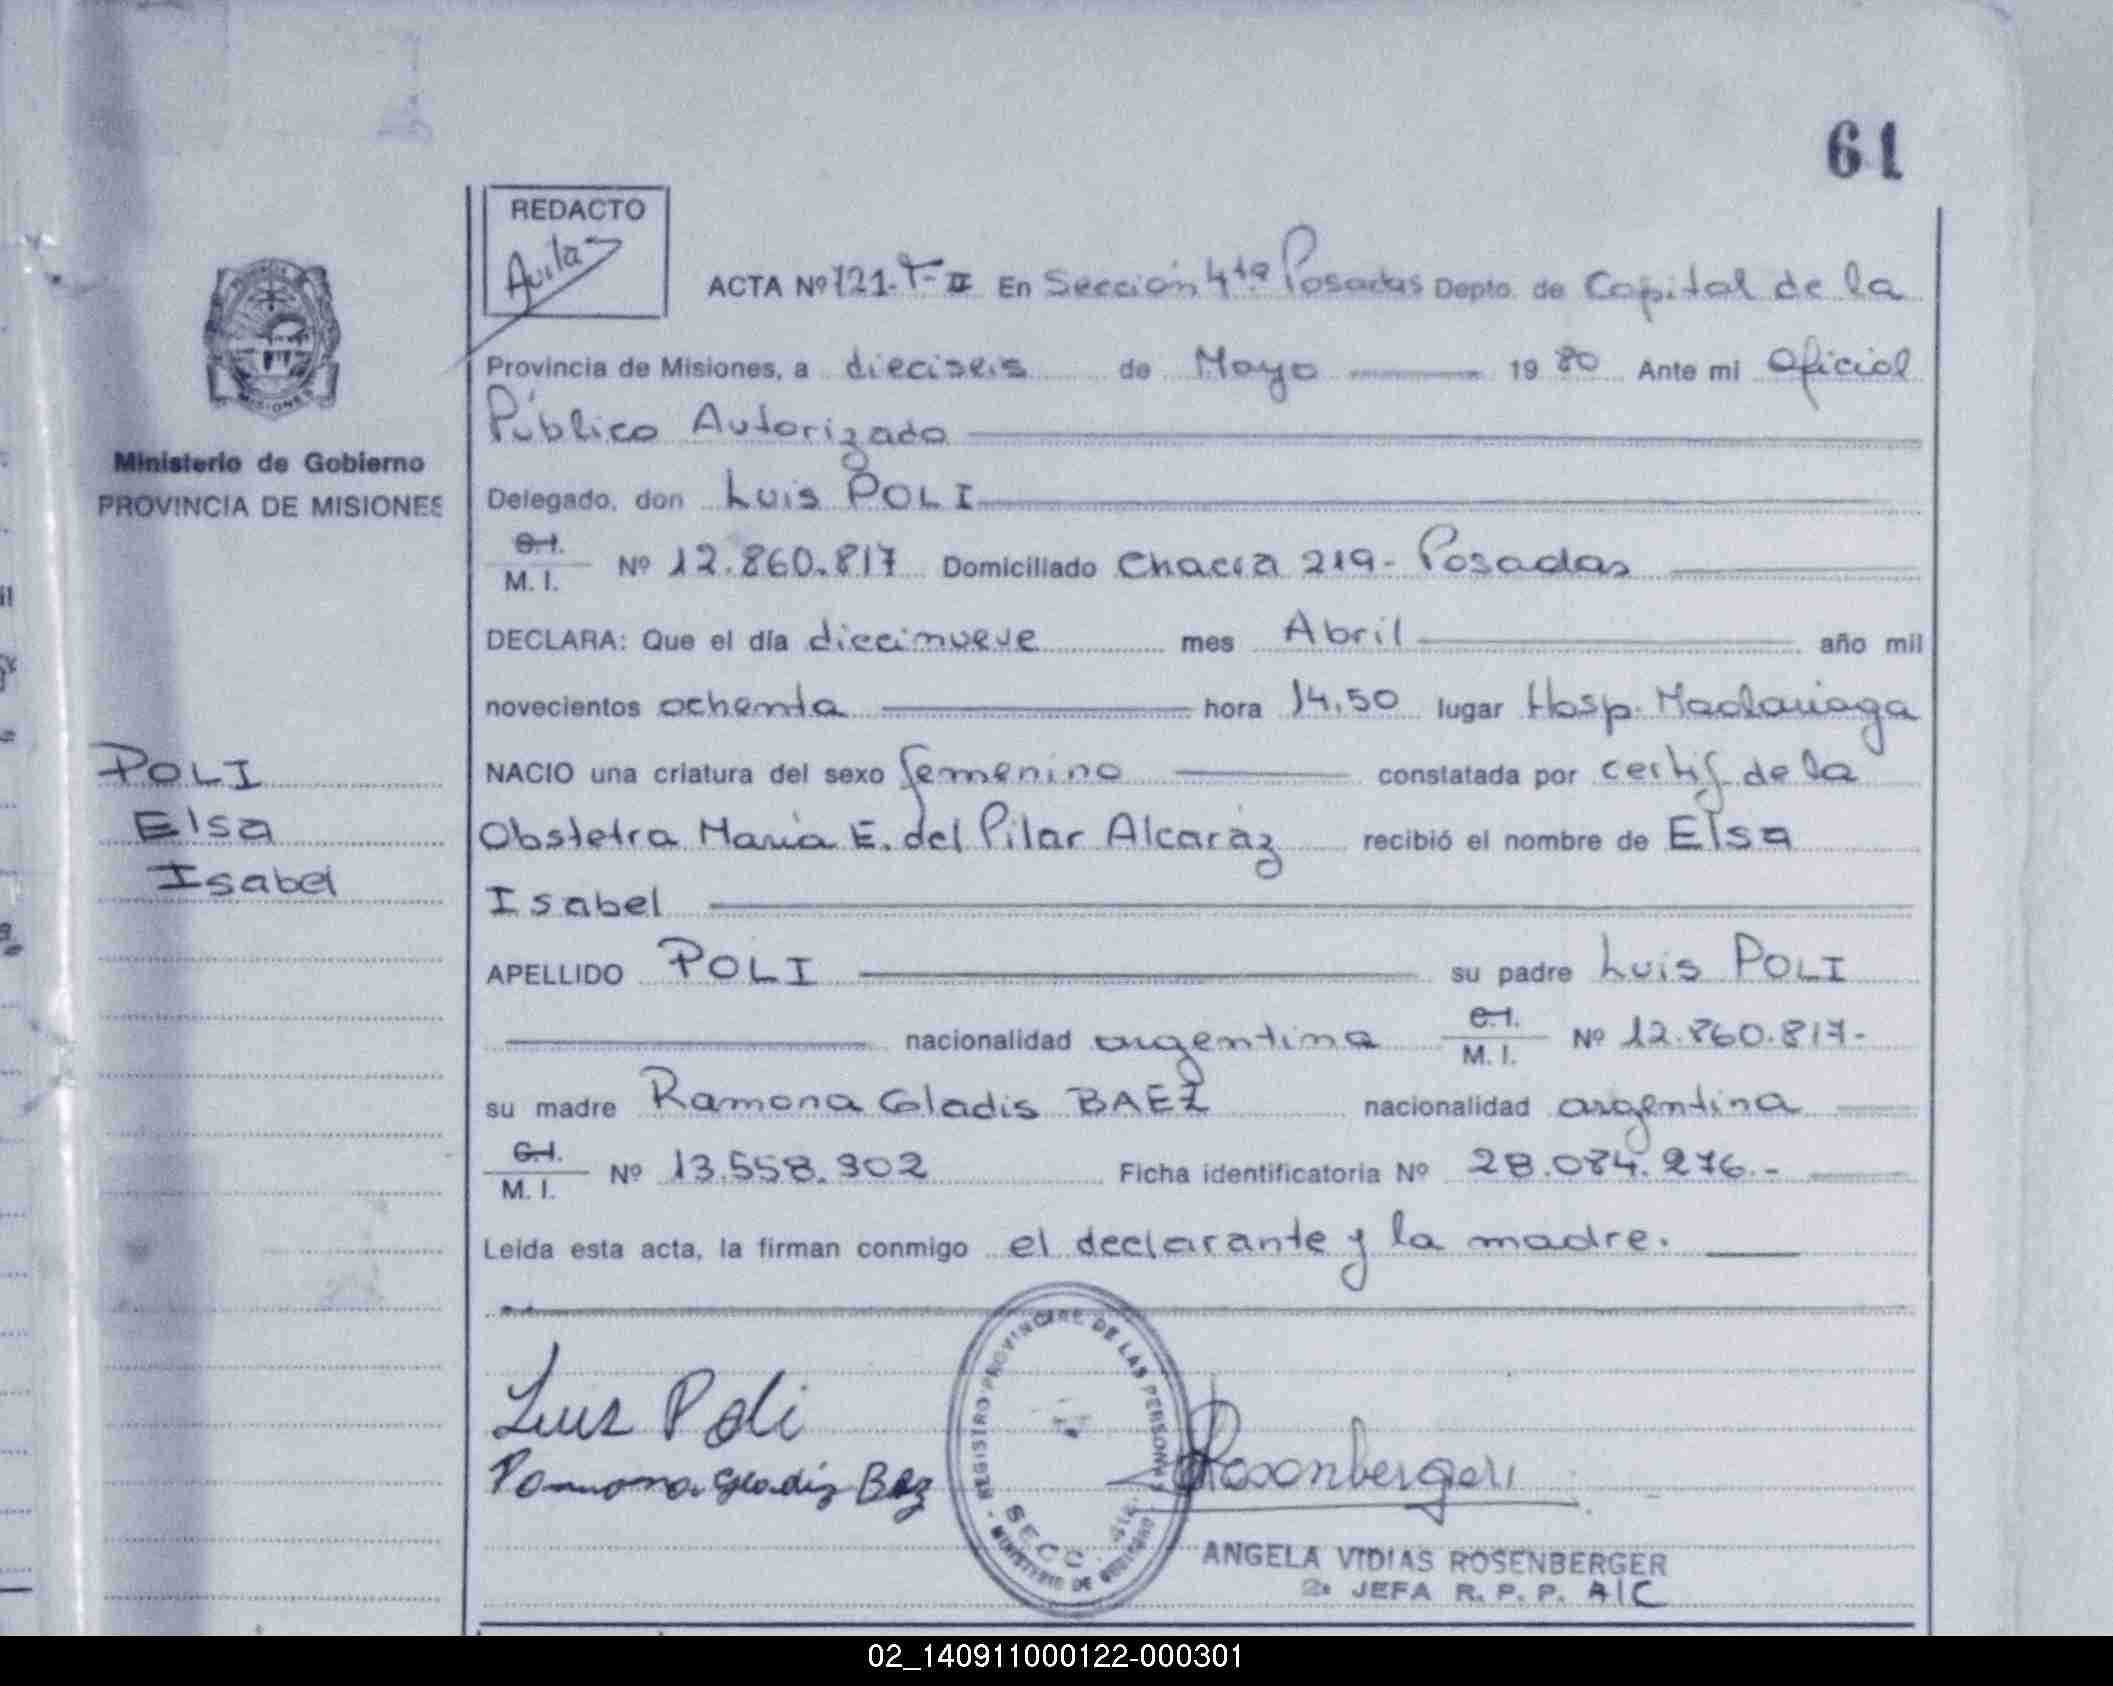 61
REDACTO
Avila
ACTA Nº 121-T-II En Sección 4ta Posadas Depto. de Capital de la
Provincia de Misiones, a dieciseis de Mayo 1980 Ante mi Oficial
Público Autorizado
Delegado, don Luis POLI
C.I.
M. I. Nº 12.860.817 Domiciliado Chacra 219- Posadas
DECLARA: Que el día diecinueve mes Abril año mil
novecientos ochenta hora 14,50 lugar Hosp. Madariaga
NACIO una criatura del sexo femenino constatada por certif de la
Obstetra María E. del Pilar Alcaráz recibió el nombre de Elsa
Isabel
APELLIDO POLI su padre Luis POLI
nacionalidad argentina C.I.
M. I. Nº 12.860.817-
su madre Ramona Gladis BAEZ nacionalidad argentina
C.I.
M. I. Nº 13.558.902 Ficha identificatoria Nº 28.084.276.-
Leida esta acta, la firman conmigo el declarante y la madre.
Luis Poli
Ramona Gladis Baez
Rosenberger
ANGELA VIDIAS ROSENBERGER
2a JEFA R. P. P. A/C
REGISTRO PROVINCIAL DE LAS PERSONAS
SECC. 4ta.
MINISTERIO DE GOBIERNO
MISIONES
Ministerio de Gobierno
PROVINCIA DE MISIONES
POLI
Elsa
Isabel
02_140911000122-000301